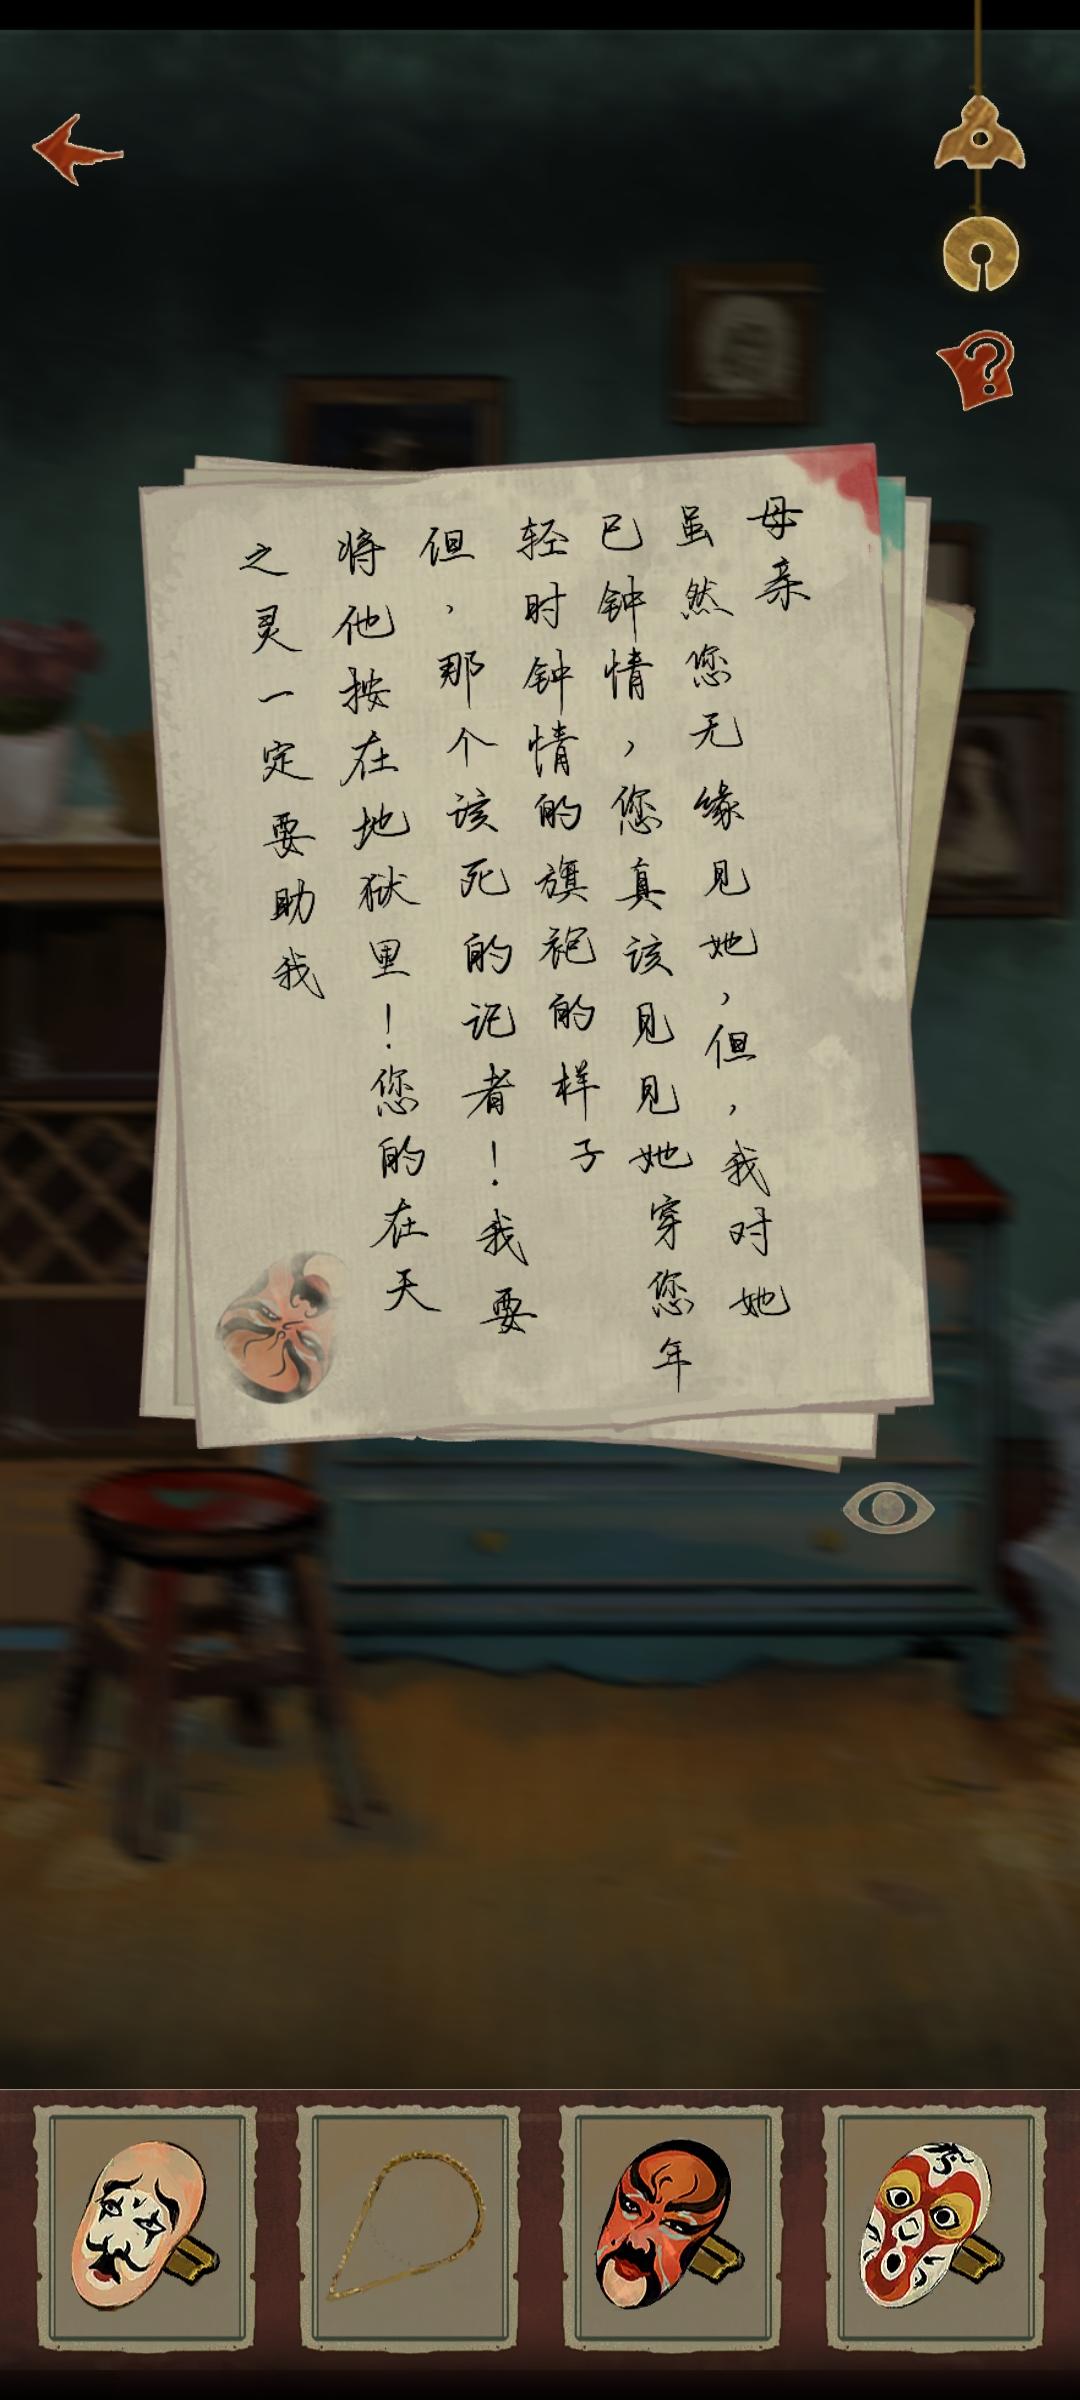 母亲
虽然您无缘见她，但，我对她
已钟情，您真该见见她穿您年
轻时钟情的旗袍的样子
但，那个该死的记者！我要
将他按在地狱里！您的在天
之灵一定要助我